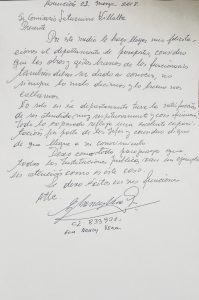 Asunción 02 mayo 2018.
Sr Comisario Saturnino Villalba
Presente
Por este medio le hago llegar mis felicita-
ciones al departamento de pasaportes, considero
que las cosas y actos buenos de los funcionarios
también deben ser dado a conocer, no
siempre lo malo decimos y lo bueno nos
callamos
No solo en su departamento tuve la satisfacción
de ser atendido, muy respetuosamente y con eficiencia
Todo lo expresado refleja una excelente capaci-
tación por parte de los Jefes y considero digno
de que llegue a su conocimiento
Deseo como todo paraguayo que
todas las instituciones públicas sean un ejemplo
de atención como es este caso
Le deseo éxitos en sus funciones
Atte
CI 833921.